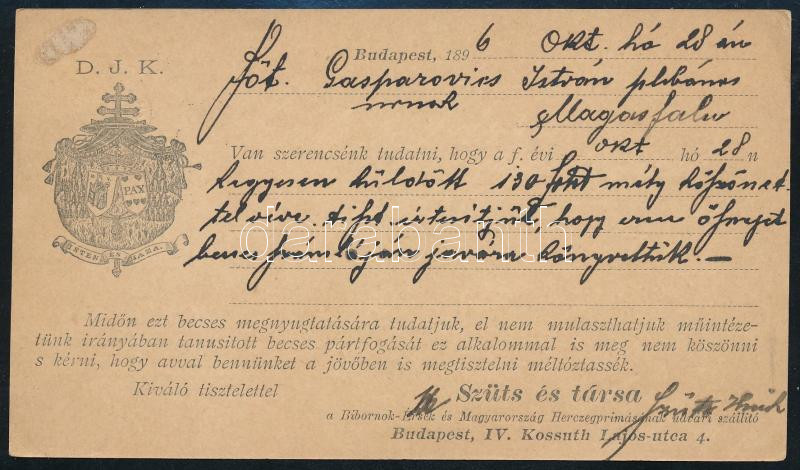 Budapest, 1896 Okt. hó 28 án
D. J. K.
Főt. Gasparovics István plébános
urnak
Magasfalu
PAX
Van szerencsénk tudatni, hogy a f. évi okt hó 28 n
kegyesen küldött 130 frtot mély köszönet-
tel véve, tiszt. értesitjük, hogy ezen öszveget
becses számlájár javára könyveltük. —
ISTEN ÉS HAZA.
Midőn ezt becses megnyugtatására tudatjuk, el nem mulaszthatjuk műintéze-
tünk irányában tanusitott becses pártfogását ez alkalommal is meg nem köszönni
s kérni, hogy avval bennünket a jövőben is megtisztelni méltóztassék.
Kiváló tisztelettel
Szüts és társa
a Bibornok-Érsek és Magyarország Herczegprimásának udvari szállitó
Budapest, IV. Kossuth Lajos-utca 4.
darabanth